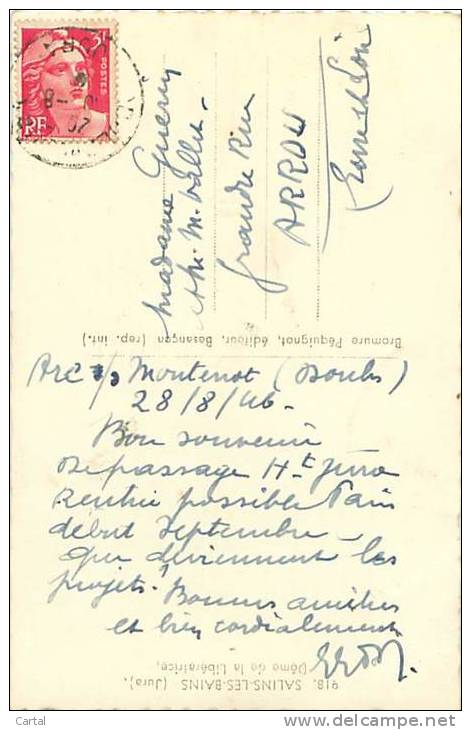 3F
POSTES
RF
Madame Guerry
chez M. Vallée
Grande Rue
ARROU
Eure et Loir
Bromure Péquignot, éditeur, Besançon (rep. int.)
Arc s/s Montenot (Doubs)
28/8/46.
Bon souvenir
de passage Ht Jura
Rentrée possible Paris
début Septembre
que deviennent les
projets? Bonnes amitiés
et bien cordialement
918. SALINS-LES-BAINS (Jura).
Dôme de la Libératrice,
Cartal
delcampe.net